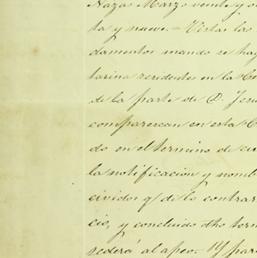 Nazas Marzo veinte y o
ta y nueve. - Vistas las
damentos mando se hag
tarina residente en la
de la parte de D. Jesu
comparezcan en esta C
do en el termino de cin
la notificación y nomb
cividos q.e de lo contrar
cio, y concluido dho term
cederá al apeo. - Y para